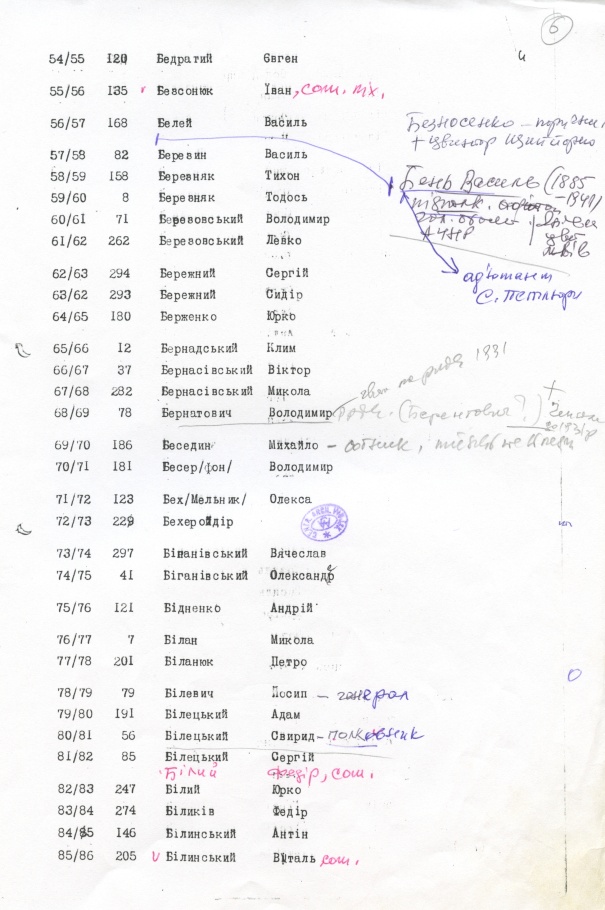 6
54/55 120 Бедратий Євген
55/56 135 v Безсонюк Іван, сот. піх.
56/57 168 Белей Василь
Безносенко –
+ цвинтар
57/58 82 Беревин Василь
58/59 158 Березняк Тихон
Бень Василь (1885
59/60 8 Березняк Тодось
– 1941)
60/61 71 Березовський Володимир
61/62 262 Березовський Левко
АУНР
62/63 294 Бережний Сергій
ад'ютант
63/62 293 Бережний Сидір
С. Петлюри
64/65 180 Берженко Юрко
65/66 12 Бернадський Клим
1931
66/67 37 Бернасівський Віктор
67/68 282 Бернасівський Микола
68/69 78 Бернатович Володимир
69/70 186 Беседин Михайло – сотник,
70/71 181 Бесер/фон/ Володимир
71/72 123 Бех/Мельник/ Олекса
72/73 229 Бехеройдір
73/74 297 Біганівський Вячеслав
74/75 41 Біганівський Олександр
75/76 121 Бідненко Андрій
76/77 7 Білан Микола
77/78 201 Біланюк Петро
78/79 79 Білевич Йосип – генерал
79/80 191 Білецький Адам
80/81 56 Білецький Свирид – полковник
81/82 85 Білецький Сергій
Білий Федір, сот.
82/83 247 Білий Юрко
83/84 274 Біликів Федір
84/85 146 Білинський Антін
85/86 205 v Білинський Віталь сот.